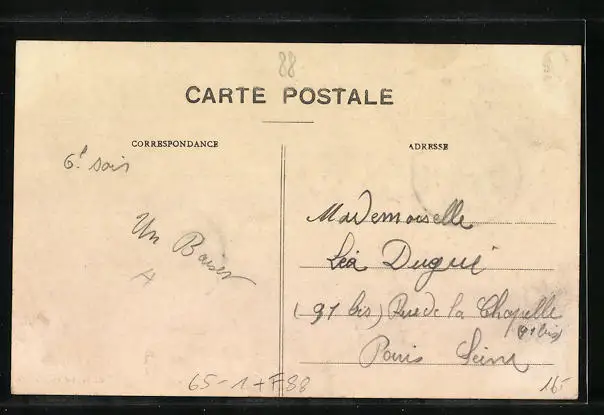 88
CARTE POSTALE
CORRESPONDANCE
ADRESSE
6h soir
Un Baiser
A
Mademoiselle
Léa Dugué
(91 bis) Rue de la Chapelle
(91 bis)
Paris Seine
65-1+F88
165